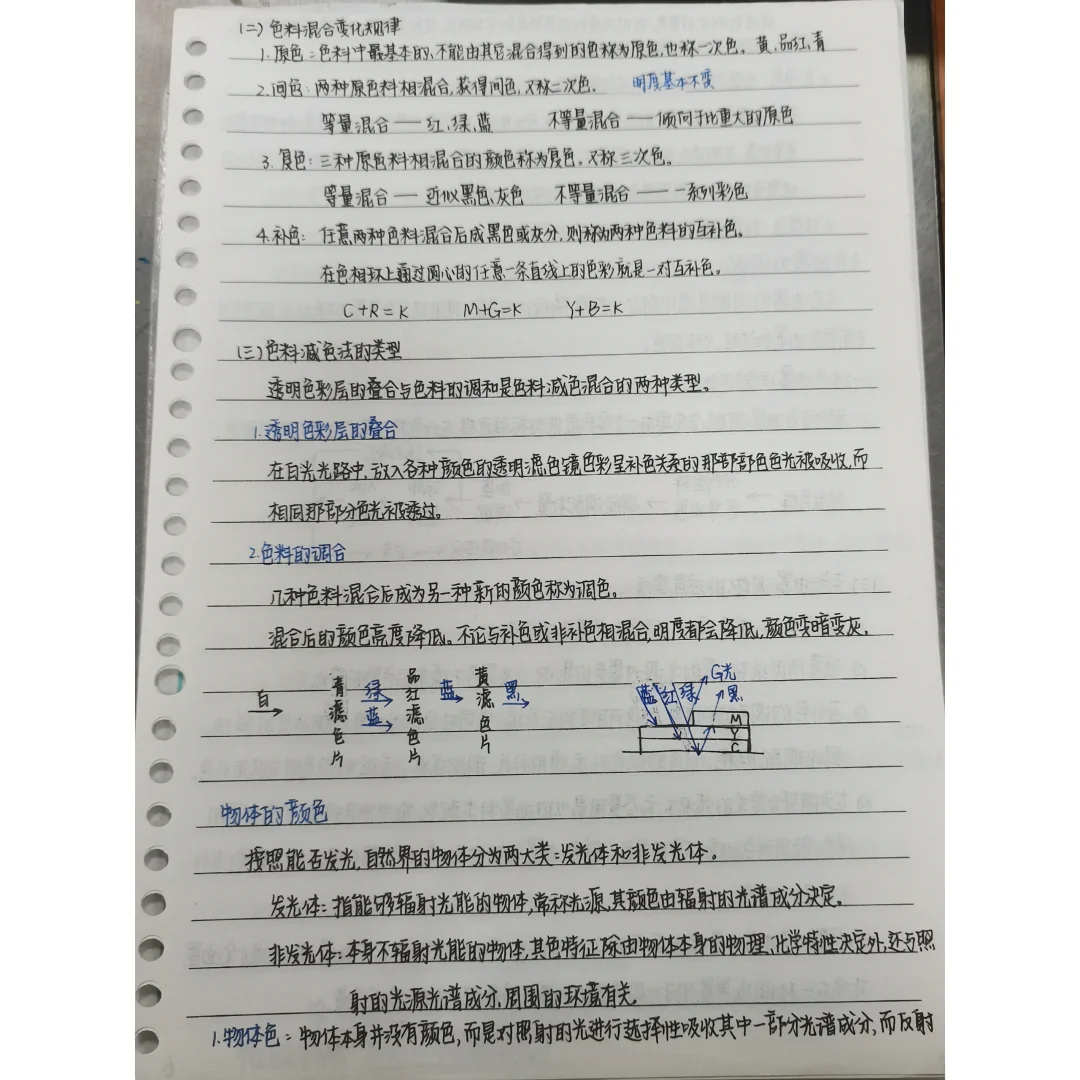 (二)色料混合变化规律
1.原色:色料中最基本的、不能由其它混合得到的色称为原色,也称一次色。黄、品红、青
2.间色:两种原色料相混合,获得间色,又称二次色. 明度基本不变
等量混合——红,绿,蓝 不等量混合——倾向于比重大的原色
3.复色:三种原色料相混合的颜色称为复色。又称三次色。
等量混合——近似黑色、灰色 不等量混合——一系列彩色
4.补色: 任意两种色料混合后成黑色或灰分,则称为两种色料的互补色。
在色相环上通过圆心的任意一条直线上的色彩就是一对互补色。
C+R=K M+G=K Y+B=K
(三)色料减色法的类型
透明色彩层的叠合与色料的调和是色料减色混合的两种类型。
1.透明色彩层的叠合
在白光光路中,放入各种颜色的透明滤色镜色彩呈补色关系的那部部色色光被吸收,而
相同那部分色光被透过。
2.色料的调合
几种色料混合后成为另一种新的颜色称为调色。
混合后的颜色亮度降低。不论与补色或非补色相混合,明度都会降低,颜色变暗变灰.
白 青滤色片 绿 蓝 品红滤色片 蓝 黄滤色片 黑
蓝 红 绿 G光 黑
M
Y
C
物体的颜色
按照能否发光,自然界的物体分为两大类:发光体和非发光体。
发光体:指能够辐射光能的物体,常称光源,其颜色由辐射的光谱成分决定。
非发光体:本身不辐射光能的物体,其色特征除由物体本身的物理、化学特性决定外,还与照
射的光源光谱成分,周围的环境有关.
1.物体色:物体本身并没有颜色,而是对照射的光进行选择性吸收其中一部分光谱成分,而反射